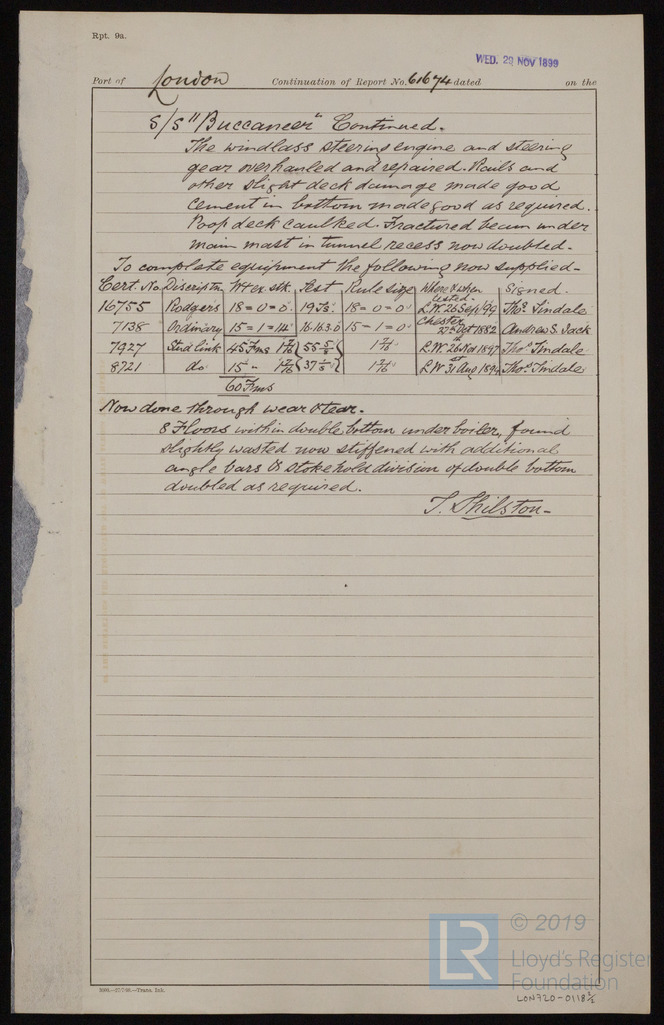 Rpt. 9a.
WED. 29 NOV 1899
Port of London Continuation of Report No. 61674 dated on the
S/S "Buccaneer" Continued.
The windlass steering engine and steering
gear overhauled and repaired. Rails and
other slight deck damage made good
cement in bottom made good as required.
Poop deck caulked. Fractured beam under
main mast in tunnel recess now doubled.
To complete equipment the following now supplied-
Cert. No. Discriptn Wt ex stk. Test Rule size Where & when tested. Signed.
16755 Rodgers 18=0=0. 19 Ts. 18=0=0 L.W. 26 Sep/99 Thos. Tindale
7138 Ordinary 15=1=14 16.16.3.0 15-1=0 Chester 27th Oct 1882 Andrew S. Jack
7927 Stud link 45 Fms 1 7/16 55 5/8 1 7/16 L.W. 26 Nov 1897 Thos. Tindale
8721 do 15 " 1 7/16 37 1/8 1 7/16 L.W. 31 Aug 1894 Thos. Tindale
60 Fms
Now done through wear & tear.
8 Floors within double bottom under boiler, found
slightly wasted now stiffened with additional
angle bars & stokehold division of double bottom
doubled as required.
T. Shilston-
© 2019
LR
Lloyd's Register
Foundation
LON720-0118 1/2